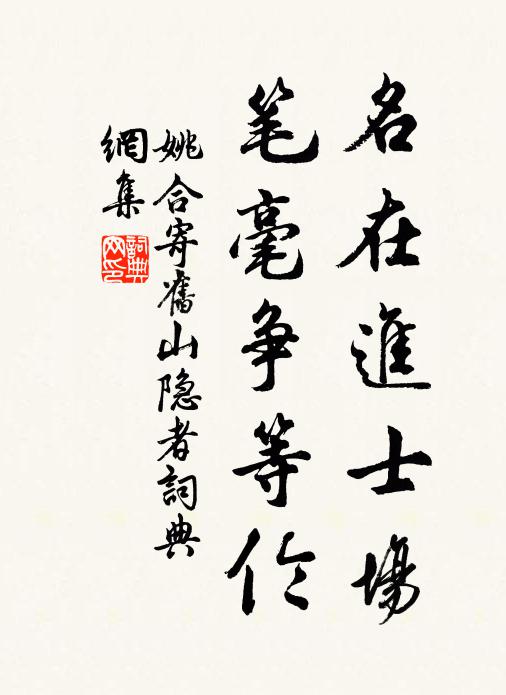 名在進士場
笔毫争等伦
姚合寄舊山隐者詞典
網集
詞典
网印